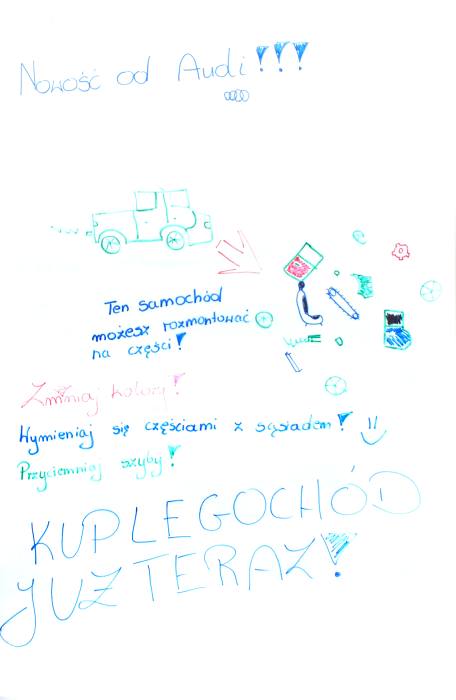 Nowość od Audi!!!
Ten samochód
możesz rozmontować
na części!
Zmniaj kolory!
Wymieniaj się częściami z sąsiadem!
Przyciemniaj szyby!
KUP LEGOCHÓD
JUŻ TERAZ!